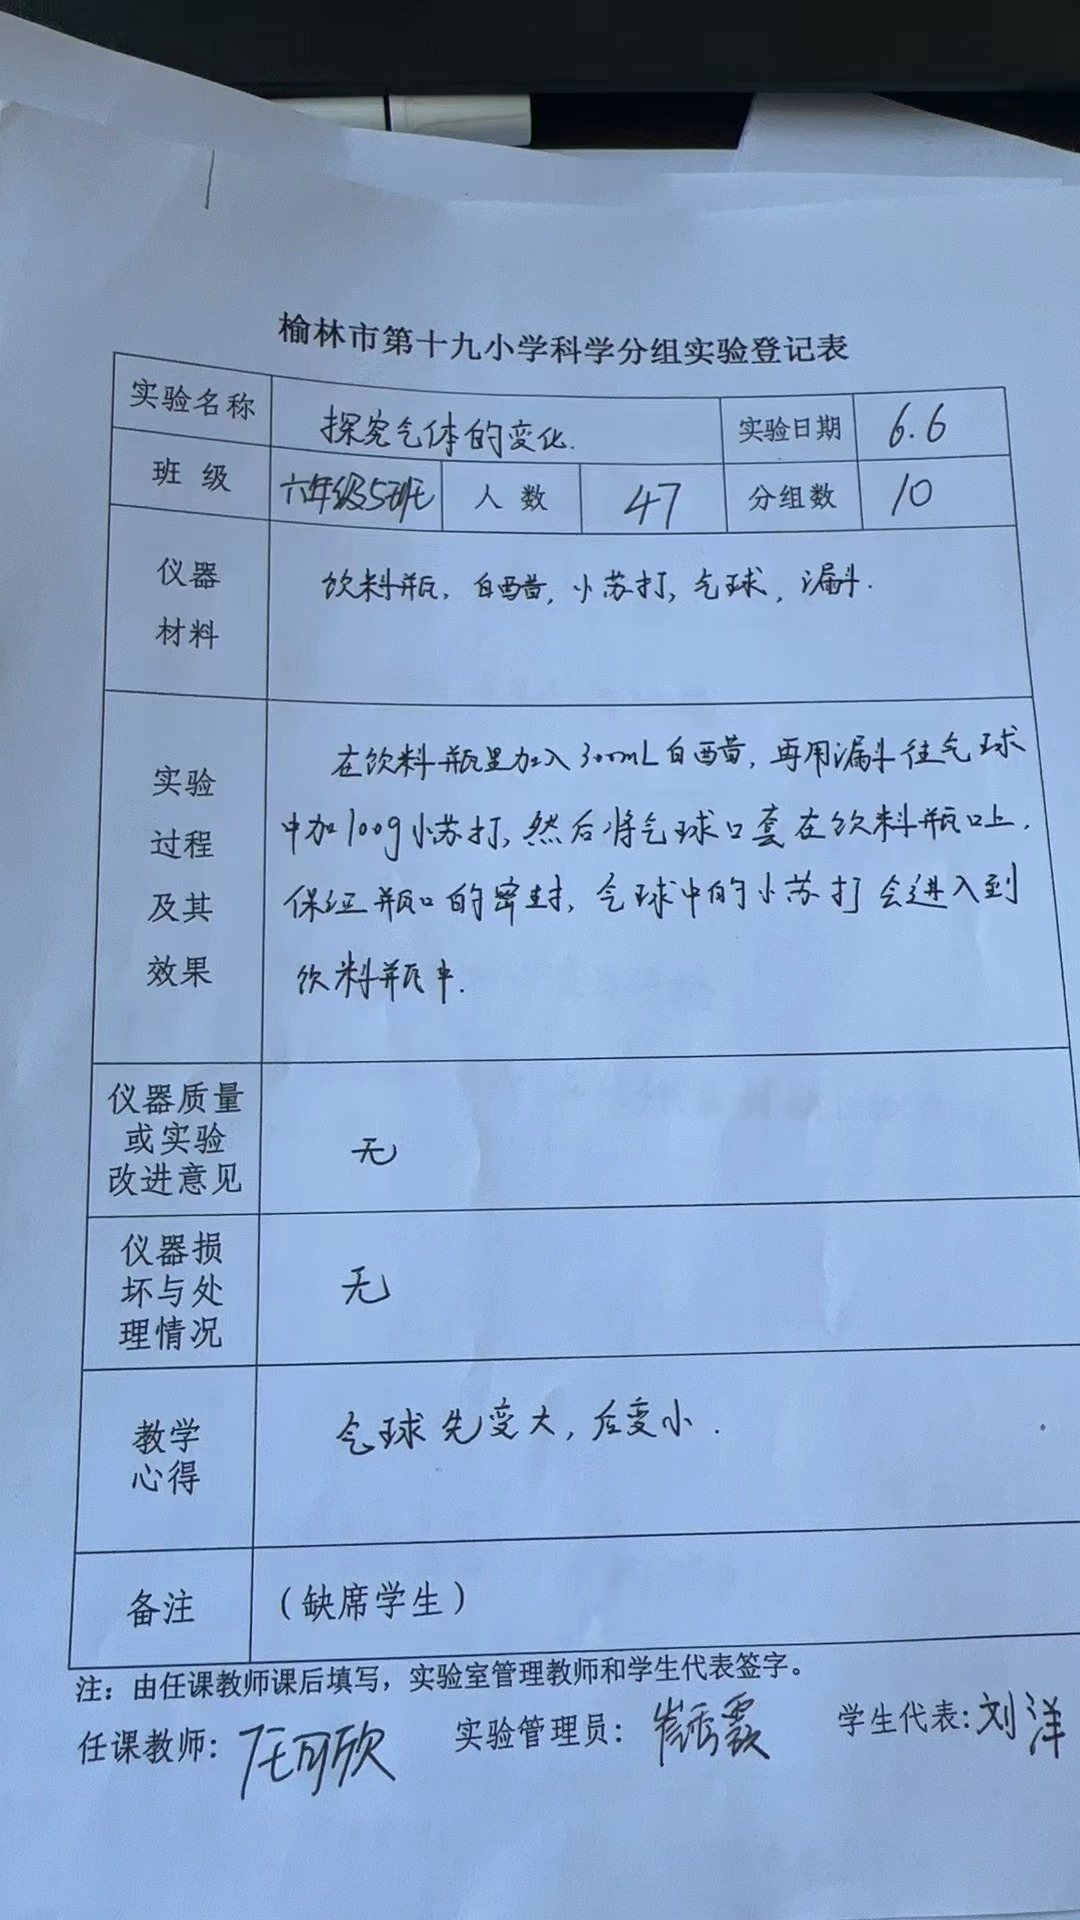 榆林市第十九小学科学分组实验登记表
实验名称 探究气体的变化. 实验日期 6.6
班 级 六年级5班 人 数 47 分组数 10
仪器
材料
饮料瓶, 白醋, 小苏打, 气球, 漏斗.
实验
过程
及其
效果
在饮料瓶里加入300mL白醋, 再用漏斗往气球
中加100g小苏打, 然后将气球口套在饮料瓶口上.
保证瓶口的密封, 气球中的小苏打会进入到
饮料瓶中.
仪器质量
或实验
改进意见
无
仪器损
坏与处
理情况
无
教学
心得
气球先变大, 后变小.
备注 （缺席学生）
注：由任课教师课后填写，实验室管理教师和学生代表签字。
任课教师: 可欣 实验管理员: 秀霞 学生代表: 刘洋